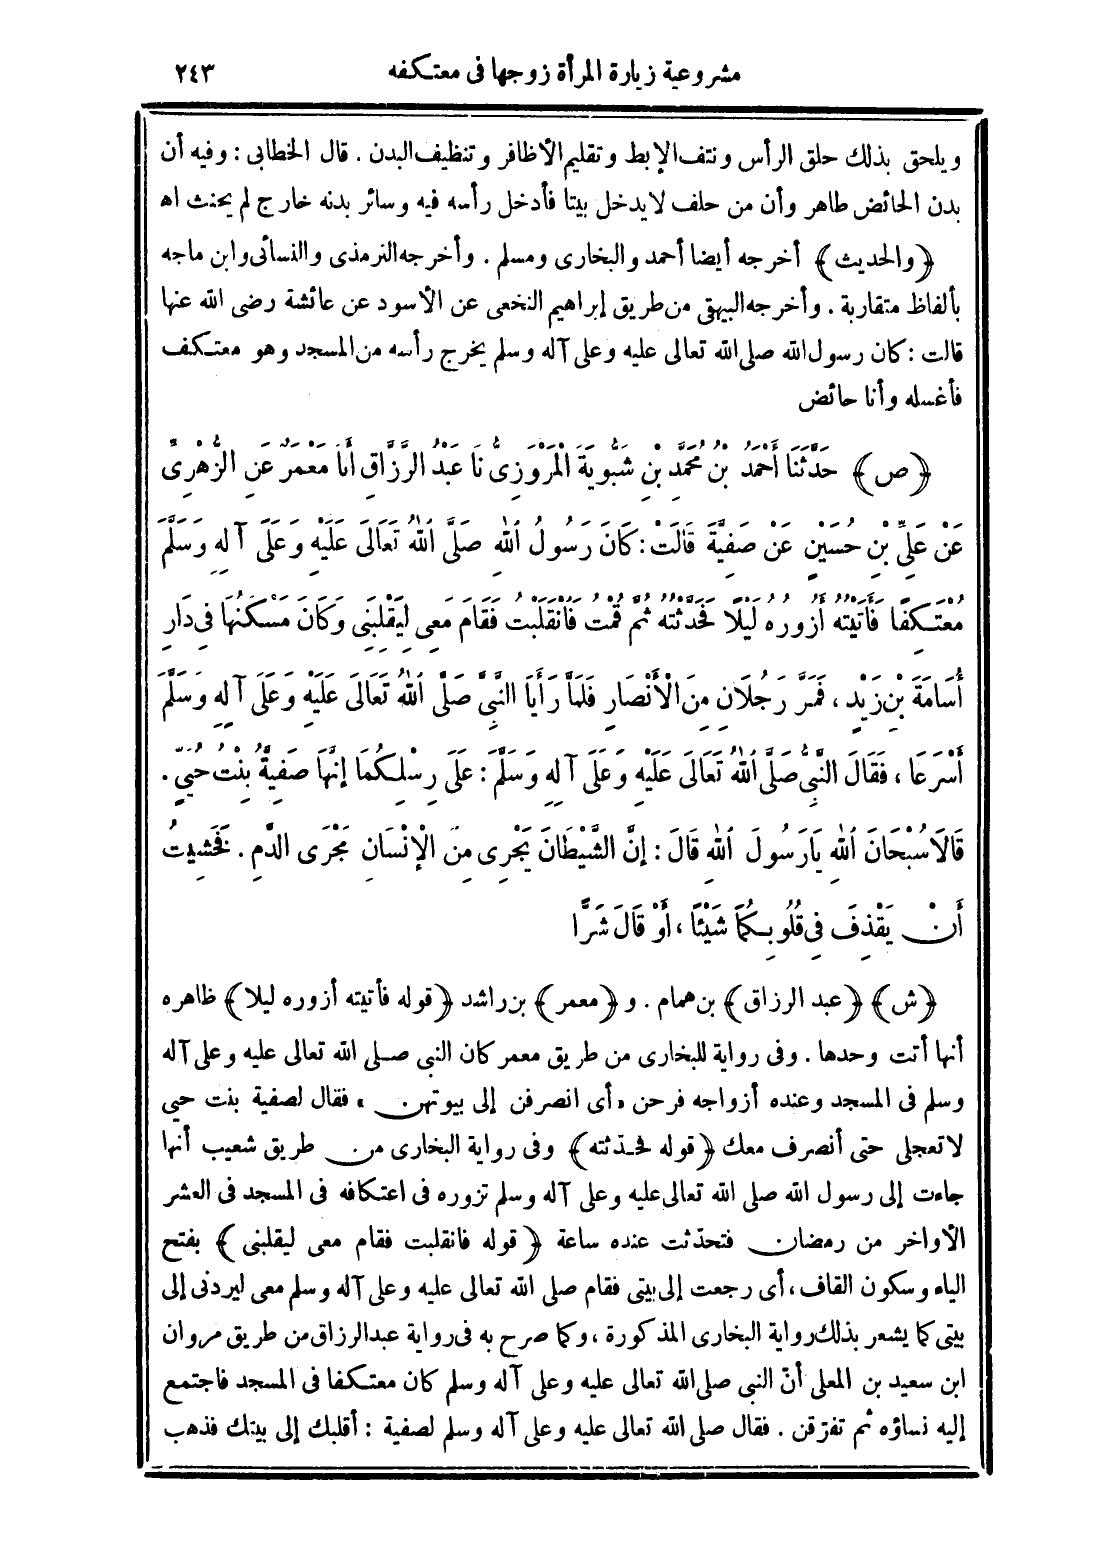 مشروعية زيارة المرأة زوجها فى معتكفه ٢٤٣
ويلحق بذلك حلق الرأس ونتف الإبط وتقليم الأظافر وتنظيف البدن . قال الخطابى : وفيه أن
بدن الحائض طاهر وأن من حلف لا يدخل بيتا فأدخل رأسه فيه وسائر بدنه خارج لم يحنث اه
﴿والحديث﴾ أخرجه أيضا أحمد والبخارى ومسلم . وأخرجه الترمذى والنسائى وابن ماجه
بألفاظ متقاربة . وأخرجه البيهقى من طريق إبراهيم النخعى عن الأسود عن عائشة رضى الله عنها
قالت : كان رسول الله صلى الله تعالى عليه وعلى آله وسلم يخرج رأسه من المسجد وهو معتكف
فأغسله وأنا حائض
﴿ص﴾ حَدَّثَنَا أَحْمَدُ بْنُ مُحَمَّدِ بْنِ شَبُّويَةَ الْمَرْوَزِىُّ نَا عَبْدُ الرَّزَّاقِ أَنَا مَعْمَرٌ عَنِ الزُّهْرِىِّ
عَنْ عَلِىِّ بْنِ حُسَيْنٍ عَنْ صَفِيَّةَ قَالَتْ : كَانَ رَسُولُ اللهِ صَلَّى اللهُ تَعَالَى عَلَيْهِ وَعَلَى آلِهِ وَسَلَّمَ
مُعْتَكِفًا فَأَتَيْتُهُ أَزُورُهُ لَيْلًا فَحَدَّثْتُهُ ثُمَّ قُمْتُ فَانْقَلَبْتُ فَقَامَ مَعِى لِيَقْلِبَنِى وَكَانَ مَسْكَنُهَا فِى دَارِ
أُسَامَةَ بْنِ زَيْدٍ ، فَمَرَّ رَجُلَانِ مِنَ الْأَنْصَارِ فَلَمَّا رَأَيَا النَّبِىَّ صَلَّى اللهُ تَعَالَى عَلَيْهِ وَعَلَى آلِهِ وَسَلَّمَ
أَسْرَعَا ، فَقَالَ النَّبِىُّ صَلَّى اللهُ تَعَالَى عَلَيْهِ وَعَلَى آلِهِ وَسَلَّمَ : عَلَى رِسْلِكُمَا إِنَّهَا صَفِيَّةُ بِنْتُ حُيَىٍّ .
قَالَا سُبْحَانَ اللهِ يَارَسُولَ اللهِ قَالَ : إِنَّ الشَّيْطَانَ يَجْرِى مِنَ الْإِنْسَانِ مَجْرَى الدَّمِ . فَخَشِيتُ
أَنْ يَقْذِفَ فِى قُلُوبِكُمَا شَيْئًا ، أَوْ قَالَ شَرًّا
﴿ش﴾ ﴿عبد الرزاق﴾ بن همام . و ﴿معمر﴾ بن راشد ﴿قوله فأتيته أزوره ليلا﴾ ظاهره
أنها أتت وحدها . وفى رواية للبخارى من طريق معمر كان النبى صلى الله تعالى عليه وعلى آله
وسلم فى المسجد وعنده أزواجه فرحن «أى انصرفن إلى بيوتهن» فقال لصفية بنت حيى
لا تعجلى حتى أنصرف معك ﴿قوله فحدثته﴾ وفى رواية البخارى من طريق شعيب أنها
جاءت إلى رسول الله صلى الله تعالى عليه وعلى آله وسلم تزوره فى اعتكافه فى المسجد فى العشر
الأواخر من رمضان فتحدثت عنده ساعة ﴿قوله فانقلبت فقام معى ليقلبنى﴾ بفتح
الياء وسكون القاف ، أى رجعت إلى بيتى فقام صلى الله تعالى عليه وعلى آله وسلم معى ليردنى إلى
بيتى كما يشعر بذلك رواية البخارى المذكورة ، وكما صرح به فى رواية عبد الرزاق من طريق مروان
ابن سعيد بن المعلى أنّ النبى صلى الله تعالى عليه وعلى آله وسلم كان معتكفا فى المسجد فاجتمع
إليه نساؤه ثم تفرّقن . فقال صلى الله تعالى عليه وعلى آله وسلم لصفية : أقلبك إلى بيتك فذهب